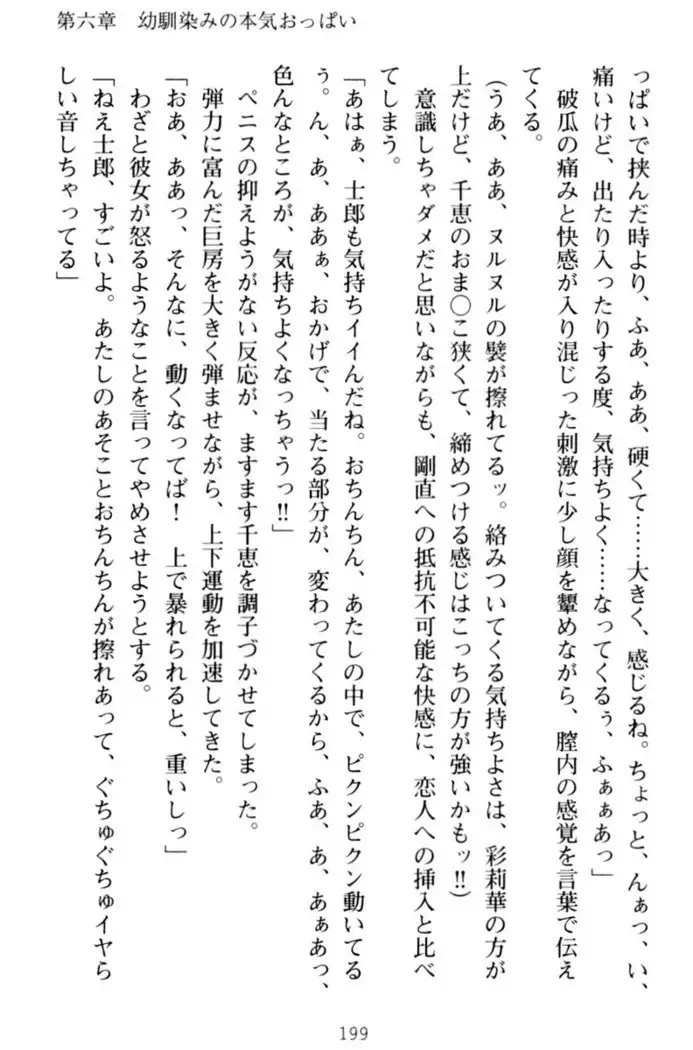 第六章　幼馴染みの本気おっぱい
っぱいで挟んだ時より、ふあ、ああ、硬くて……大きく、感じるね。ちょっと、んぁっ、い、
痛いけど、出たり入ったりする度、気持ちよく……なってくるぅ、ふぁぁあっ」
　破瓜の痛みと快感が入り混じった刺激に少し顔を顰めながら、膣内の感覚を言葉で伝え
てくる。
（うあ、ああ、ヌルヌルの襞が擦れてるッ。絡みついてくる気持ちよさは、彩莉華の方が
上だけど、千恵のおま〇こ狭くて、締めつける感じはこっちの方が強いかもッ!!）
　意識しちゃダメだと思いながらも、剛直への抵抗不可能な快感に、恋人への挿入と比べ
てしまう。
「あはぁ、士郎も気持ちイイんだね。おちんちん、あたしの中で、ピクンピクン動いてる
ぅ。ん、あ、ああぁ、おかげで、当たる部分が、変わってくるから、ふあ、あ、あぁあっ、
色んなところが、気持ちよくなっちゃうっ!!」
　ペニスの抑えようがない反応が、ますます千恵を調子づかせてしまった。
　弾力に富んだ巨房を大きく弾ませながら、上下運動を加速してきた。
「おあ、ああっ、そんなに、動くなってば！　上で暴れられると、重いしっ」
　わざと彼女が怒るようなことを言ってやめさせようとする。
「ねえ士郎、すごいよ。あたしのあそことおちんちんが擦れあって、ぐちゅぐちゅイヤら
しい音しちゃってる」
199